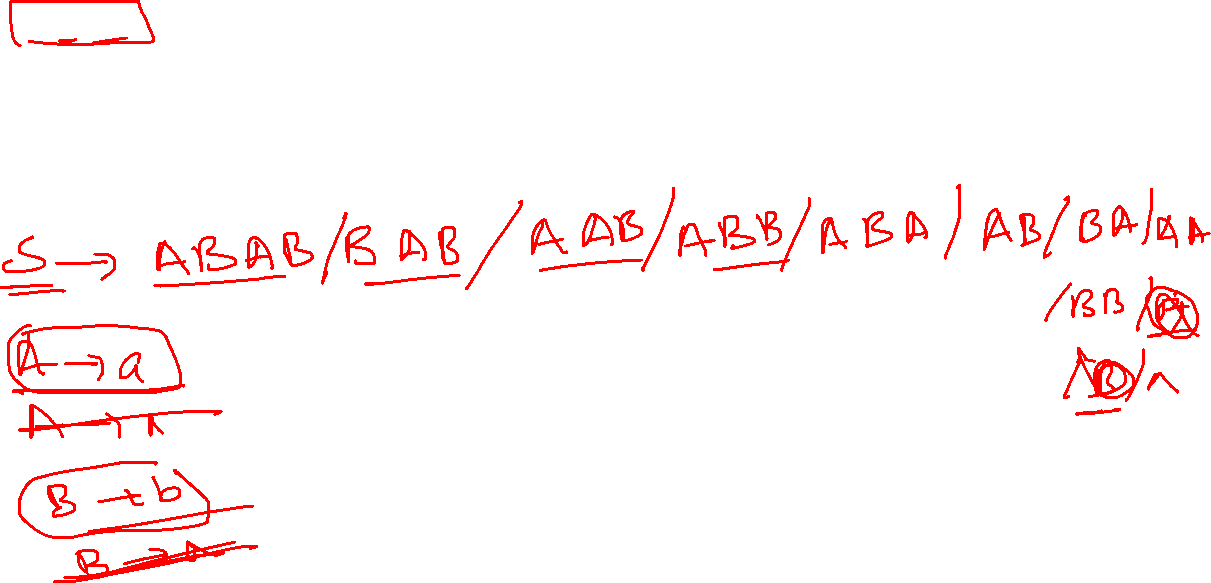 S → ABAB/BAB/AAB/ABB/ABA/AB/BA/AA
/BB/A
/B/^
A → a
A → ^
B → b
B → ^